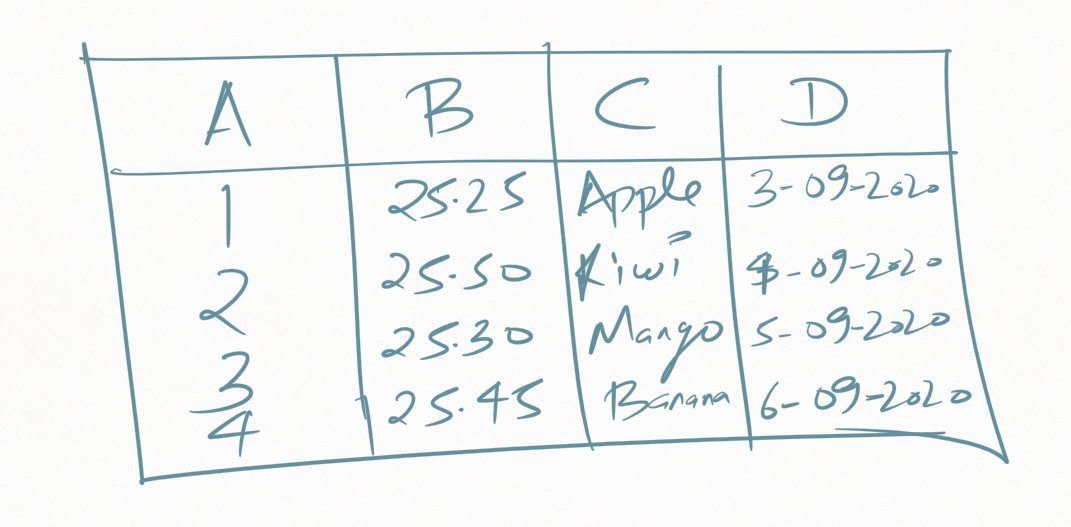 A B C D
1 25.25 Apple 3-09-2020
2 25.50 Kiwi 4-09-2020
3 25.30 Mango 5-09-2020
4 25.45 Banana 6-09-2020